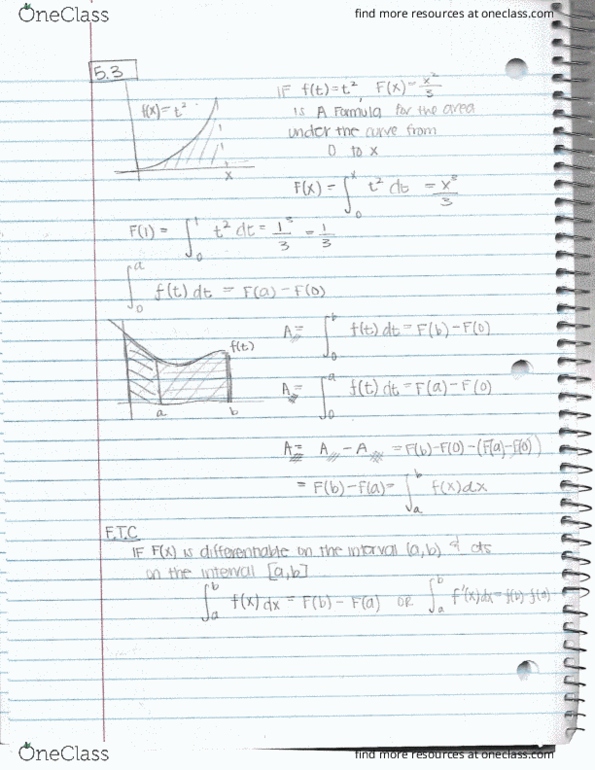 OneClass
find more resources at oneclass.com
5.3
f(x)=t²
x
IF f(t)=t², F(x)=x²/3
is A Formula for the area
under the curve from
0 to x
F(x) = ∫₀ˣ t² dt = x³/3
F(1) = ∫₀¹ t² dt = 1³/3 = 1/3
∫₀ᵃ f(t) dt = F(a) - F(0)
f(t)
a b
A = ∫₀ᵇ f(t) dt = F(b) - F(0)
A = ∫₀ᵃ f(t) dt = F(a) - F(0)
A = A - A = F(b) - F(0) - (F(a) - F(0))
= F(b) - F(a) = ∫ₐᵇ f(x) dx
F.T.C
IF F(x) is differentiable on the interval (a,b) & cts
on the interval [a,b]
∫ₐᵇ f(x) dx = F(b) - F(a) OR ∫ₐᵇ f'(x) dx = f(b) - f(a)
OneClass
find more resources at oneclass.com